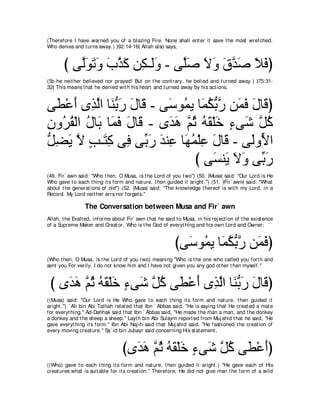 (Therefore I have warned you of a blazing Fire. None shall enter it save the most wretched. Who denies and turns away.) (92:14-16( Allah also says,
﴿فَلاَ صَدَّقَ وَلاَ صَلَّى - وَلَـكِن كَذَّبَ وَتَوَلَّى ﴾
(So he neither believed nor prayed! But on the contrary, he belied and turned away.) (75:31-32) This means that he denied with his heart and turned away by his actions.
﴿قَالَ فَمَن رَّبُّكُمَا يمُوسَى - قَالَ رَبُّنَا الَّذِى أَعْطَى كُلَّ شَىءٍ خَلْقَهُ ثُمَّ هَدَى - قَالَ فَمَا بَالُ الْقُرُونِ الاٍّولَى - قَالَ عِلْمُهَا عِندَ رَبِّى فِى كِتَـبٍ لاَّ يَضِلُّ رَبِّى وَلاَ يَنسَى ﴾
(49. Fir`awn said: "Who then, O Musa, is the Lord of you two") (50. (Musa) said: "Our Lord is He Who gave to each thing its form and nature, then guided it aright.") (51. (Fir`awn) said: "What about the generations of old") (52. (Musa) said: "The knowledge thereof is with my Lord, in a Record. My Lord neither errs nor forgets."
The Conversation between Musa and Fir`awn
Allah, the Exalted, informs about Fir`awn that he said to Musa, in his rejection of the existence of a Supreme Maker and Creator, Who is the God of everything and his own Lord and Owner:
﴿فَمَن رَّبُّكُمَا يمُوسَى﴾
(Who then, O Musa, is the Lord of you two) meaning "Who is the one who called you forth and sent you For verily, I do not know him and I have not given you any god other than myself."
﴿قَالَ رَبُّنَا الَّذِى أَعْطَى كُلَّ شَىءٍ خَلْقَهُ ثُمَّ هَدَى ﴾
((Musa) said: "Our Lord is He Who gave to each thing its form and nature, then guided it aright.") `Ali bin Abi Talhah related that Ibn `Abbas said, "He is saying that He created a mate for everything." Ad-Dahhak said that Ibn `Abbas said, "He made the man a man, and the donkey a donkey and the sheep a sheep." Layth bin Abi Sulaym reported from Mujahid that he said, "He gave everything its form." Ibn Abi Najih said that Mujahid said, "He fashioned the creation of every moving creature." Sa`id bin Jubayr said concerning His statement,
﴿أَعْطَى كُلَّ شَىءٍ خَلْقَهُ ثُمَّ هَدَى﴾
((Who) gave to each thing its form and nature, then guided it aright.) "He gave each of His creatures what is suitable for its creation." Therefore, He did not give man the form of a wild